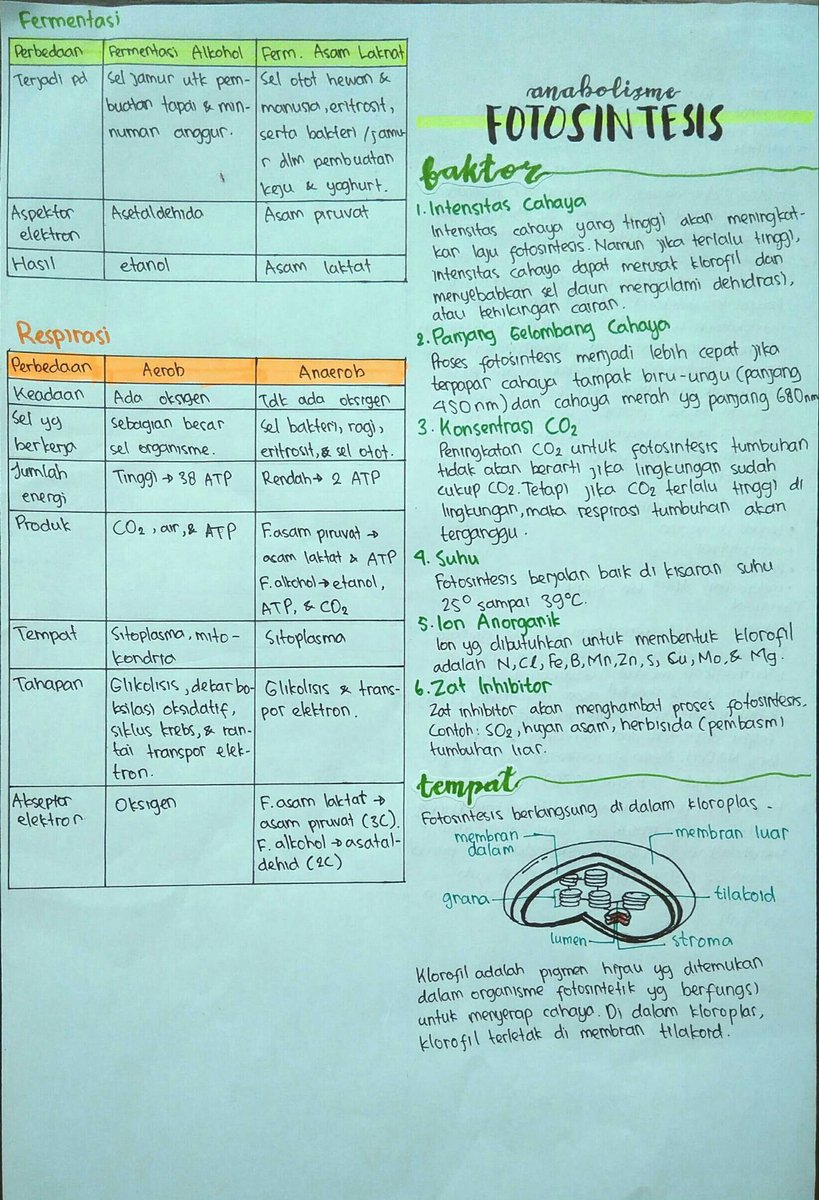 Fermentasi
Perbedaan Fermentasi Alkohol Ferm. Asam Laktat
Terjadi pd
Sel jamur utk pem-
buatan tapai & min-
numan anggur.
Sel otot hewan &
manusia, eritrosit,
serta bakteri /jamu-
r dlm pembuatan
keju & yoghurt.
Aspektor
elektron
Asetaldehida
Asam piruvat
Hasil
etanol
Asam laktat
Respirasi
Perbedaan Aerob Anaerob
Keadaan Ada oksigen Tdk ada oksigen
Sel yg
berkerja
Sebagian besar
sel organisme.
Sel bakteri, ragi,
eritrosit, & sel otot.
Jumlah
energi
Tinggi → 38 ATP
Rendah → 2 ATP
Produk
CO₂, air, & ATP
F.asam piruvat →
asam laktat & ATP
F.alkohol → etanol,
ATP, & CO₂
Tempat
Sitoplasma, mito-
kondria
Sitoplasma
Tahapan
Glikolisis, dekarbo-
ksilasi oksidatif,
siklus krebs, & ran-
tai transpor elek-
tron.
Glikolisis & trans-
por elektron.
Akseptor
elektron
Oksigen
F. asam laktat →
asam piruvat (3C).
F. alkohol → asatal-
dehid (2C)
anabolisme
FOTOSINTESIS
faktor
1. Intensitas Cahaya
Intensitas cahaya yang tinggi akan meningkat-
kan laju fotosintesis. Namun jika terlalu tinggi,
intensitas cahaya dapat merusak klorofil dan
menyebabkan sel daun mengalami dehidrasi,
atau kehilangan cairan.
2. Panjang Gelombang Cahaya
Proses fotosintesis menjadi lebih cepat jika
terpapar cahaya tampak biru-ungu (panjang
450 nm) dan cahaya merah yg panjang 680nm
3. Konsentrasi CO₂
Peningkatan CO₂ untuk fotosintesis tumbuhan
tidak akan berarti jika lingkungan sudah
cukup CO₂. Tetapi jika CO₂ terlalu tinggi di
lingkungan, maka respirasi tumbuhan akan
terganggu.
4. Suhu
Fotosintesis berjalan baik di kisaran suhu
25° sampai 39°C.
5. Ion Anorganik
Ion yg dibutuhkan untuk membentuk klorofil
adalah N, Cl, Fe, B, Mn, Zn, S, Cu, Mo, & Mg.
6. Zat Inhibitor
Zat inhibitor akan menghambat proses fotosintesis.
Contoh: SO₂, hujan asam, herbisida (pembasmi)
tumbuhan liar.
tempat
Fotosintesis berlangsung di dalam kloroplas.
membran
dalam
membran luar
grana
tilakoid
lumen
stroma
Klorofil adalah pigmen hijau yg ditemukan
dalam organisme fotosintetik yg berfungsi
untuk menyerap cahaya. Di dalam kloroplas,
klorofil terletak di membran tilakoid.